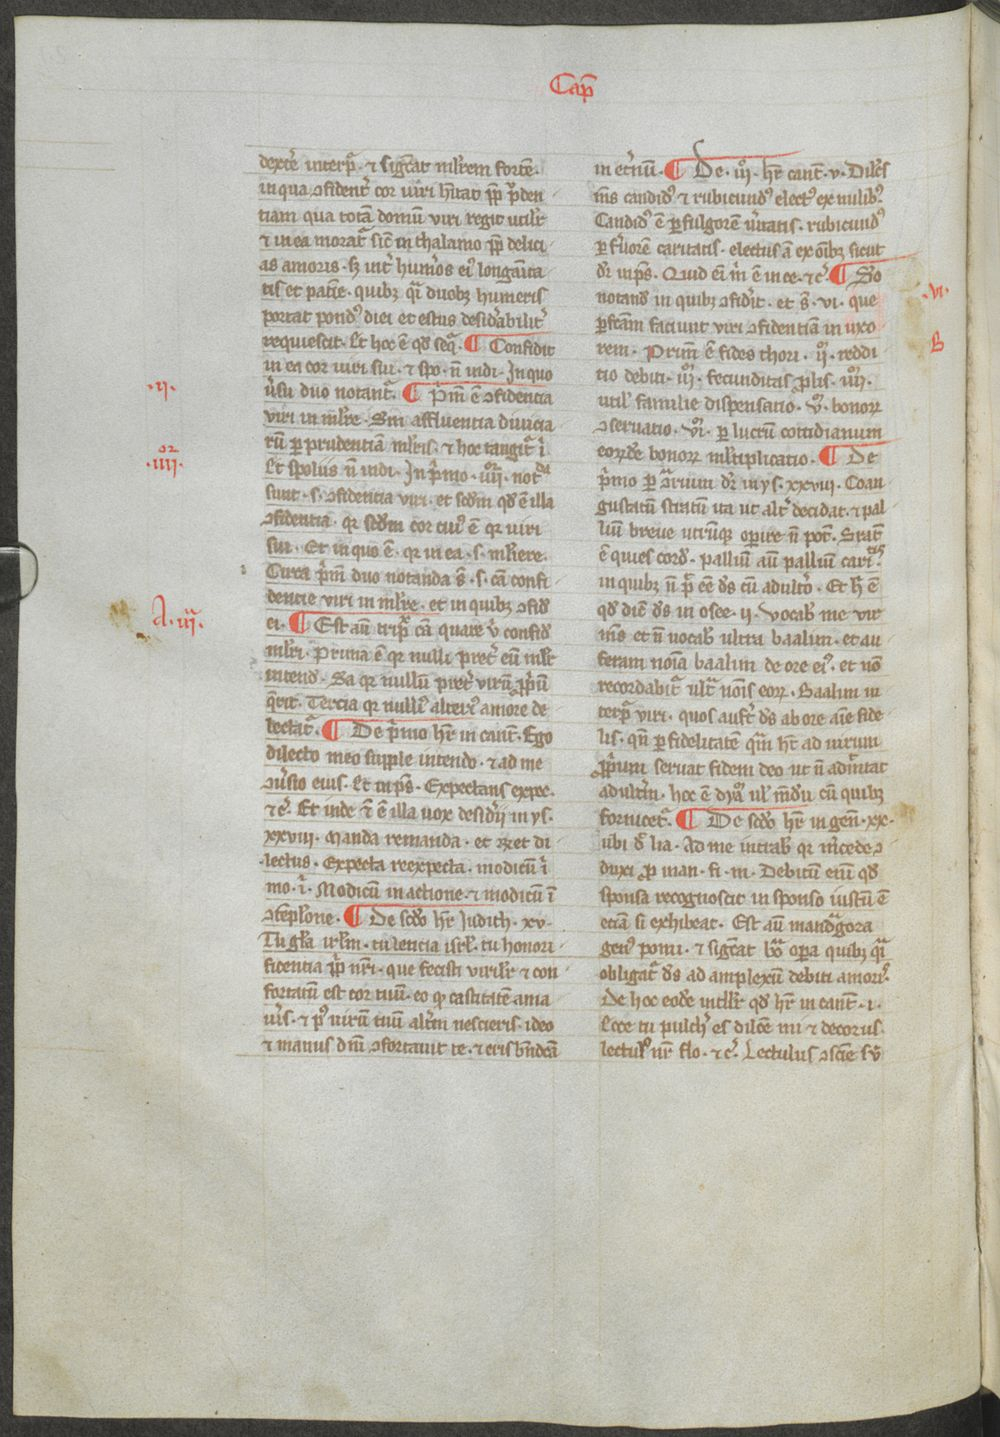 Cap̄
dext̄e interp̄. ⁊ sigͨat mlr̄em forte.
in qua ꝯfident̄ cor uiri h̄itat pp̄ p̄den
tiam qua totā domū viri regit utilr̄
⁊ in ea morat̄ sic̄ in thalamo pp̄ delici
as amoris. sꝫ int̄ hum̄os ei᷒ longanīta
tis et patiē. quibꝫ q̄i duobꝫ humeris
portat pond᷒ diei et estus desid̄abilit̄
requiescit. Et hoc ē qd̄ seq̄. ¶ Confidit
in ea cor uiri sui. ⁊ spo. n̄ indi. In quo
ūsu duo notant̄. ¶ P̄m ē ꝯfidencia
·ii·
viri in mlr̄e. Sm̄ affluencia diuicia
rū per prudentiā mlr̄is. ⁊ hoc tangit̄ ī
Et spoliis n̄ indi. In p̄mo. iiiior. notͩa
or
·iiii·
sunt. s. ꝯfidencia viri. et scd̄m qd̄ ē illa
ꝯfidentia. qr scd̄m cor cui᷒ ē qr uiri
sui. Et in quo ē. qr in ea. s. mlr̄iere.
Circa p̄m duo notanda s̄. s. cā confi
dencie viri in mlr̄e. et in quibꝫ ꝯfid̄
ei. ¶ Est aū trip̄ cā quare v̄ confid̄
A. iii.
mlr̄i. Prima ē qr nulli pret̄ eū mlr̄
intend̄. Sa qr nullū pret̄ virū p̄p̄ū
q̄rit. Tercia qr nulli᷒ alteri᷒ amore de
lectat̄. ¶ De p̄mo hr̄ in cant̄. Ego
dilecto meo supple intendo. ⁊ ad me
ꝯūsio eius. Et in ps̄. Expectans expec.
⁊c̄. Et inde ē illa uox desid̄ii in ys.
xxviii. Manda remanda. et
lectus. Expecta reexpecta. modicū ī
mo. ī. Modicū in actione. ⁊ modicū ī
ꝯtēplōne. ¶ De scd̄o hr̄ Judith. xv.
Tu gl̄a ir̄lm. tu leticia isrl̄. tu honori
ficentia p̄ nr̄i. que fecisti virilr̄ ⁊ con
fortatū est cor tuū. eo ꝙ castitatē ama
ūis. ⁊ p᷒ uirū tuū alt̄m nescieris. ideo
⁊ manus dn̄i ꝯfortauit te. ⁊ eris bn̄dcā
in et̄nū. ¶ De. iiio. hr̄ cant̄. v. Dilcs̄
ms̄ candid᷒ ⁊ rubicund᷒ elect᷒ ex milib᷒.
Candid᷒ ē per fulgorē ūitatis. rubicund᷒
per f̄uorē caritatis. electus ā ex oībꝫ sicut
dr̄ in ps̄. Quid ei m̄ ē in ce. ⁊c̄. ¶ So
notand̄ in quibꝫ ꝯfid̄it. et s̄. vi. que
·vi·
perfcām faciunt viri ꝯfidentiā in uxo
rem. Prim̄ ē fides thori. iio. reddi
B
tio debiti. iiio. fecunditas plis. iiiio.
util᷒ familie dispensatio. Vo. bonorꝝ
ꝯseruatio. vio. per lucrū cottidianum
eorꝝde bonorꝝ mltiplicatio. ¶ De
p̄mo per ꝯt̄rium dr̄ in ys. xxviii. Coan
gustatū stratū ita ut alt̄ decidat. ⁊ pal
liū breue utrūqꝫ operire n̄ pot̄. Strat̄
ē ques cord̄. palliū aū palliū caritͣs
in quibꝫ n̄ p̄ ee d̄s cū adult̄o. Et h̄ ē
qd̄ dic̄ d̄s in osee. ii. Vocab̄ me vir
ms̄ et n̄ uocab̄ ultra baalim. et au
feram nōia baalim de ore ei᷒. et nō
recordabit̄ ult̄ nōis eorꝝ. Baalim in
terp̄ viri. quos aufert d̄s ab ore aīe fide
lis. qn̄ per fidelitatē qm̄ hr̄ ad uirum
p̄prium seruat fidem deo ut n̄ admittat
adult̄m. hoc ē dyao. ul᷒ mūdū cū quibꝫ
fornicet̄. ¶ De scd̄o hr̄ in gen̄. xx.
ubi d̄ lia. Ad me intrab̄ qr m̄cede ꝯ
duxi ꝓ man. fi. m. Debitū enī qd̄
sponsa recognoscit in sponso iustū ē
etiā si exhibeat. Est aū mandͣgora
gen᷒ pomi. ⁊ sigͨat bōa opera quibꝫ q̄i
obligat̄ d̄s ad amplexū debiti amor᷒.
De hoc eodē intllr̄ qd̄ hr̄ in cant̄. i.
Ecce tu pulch̄ es dilcē mi ⁊ decorus.
lectul᷒ nr̄ flo. ⁊c̄. Lectulus ꝯscīe sū